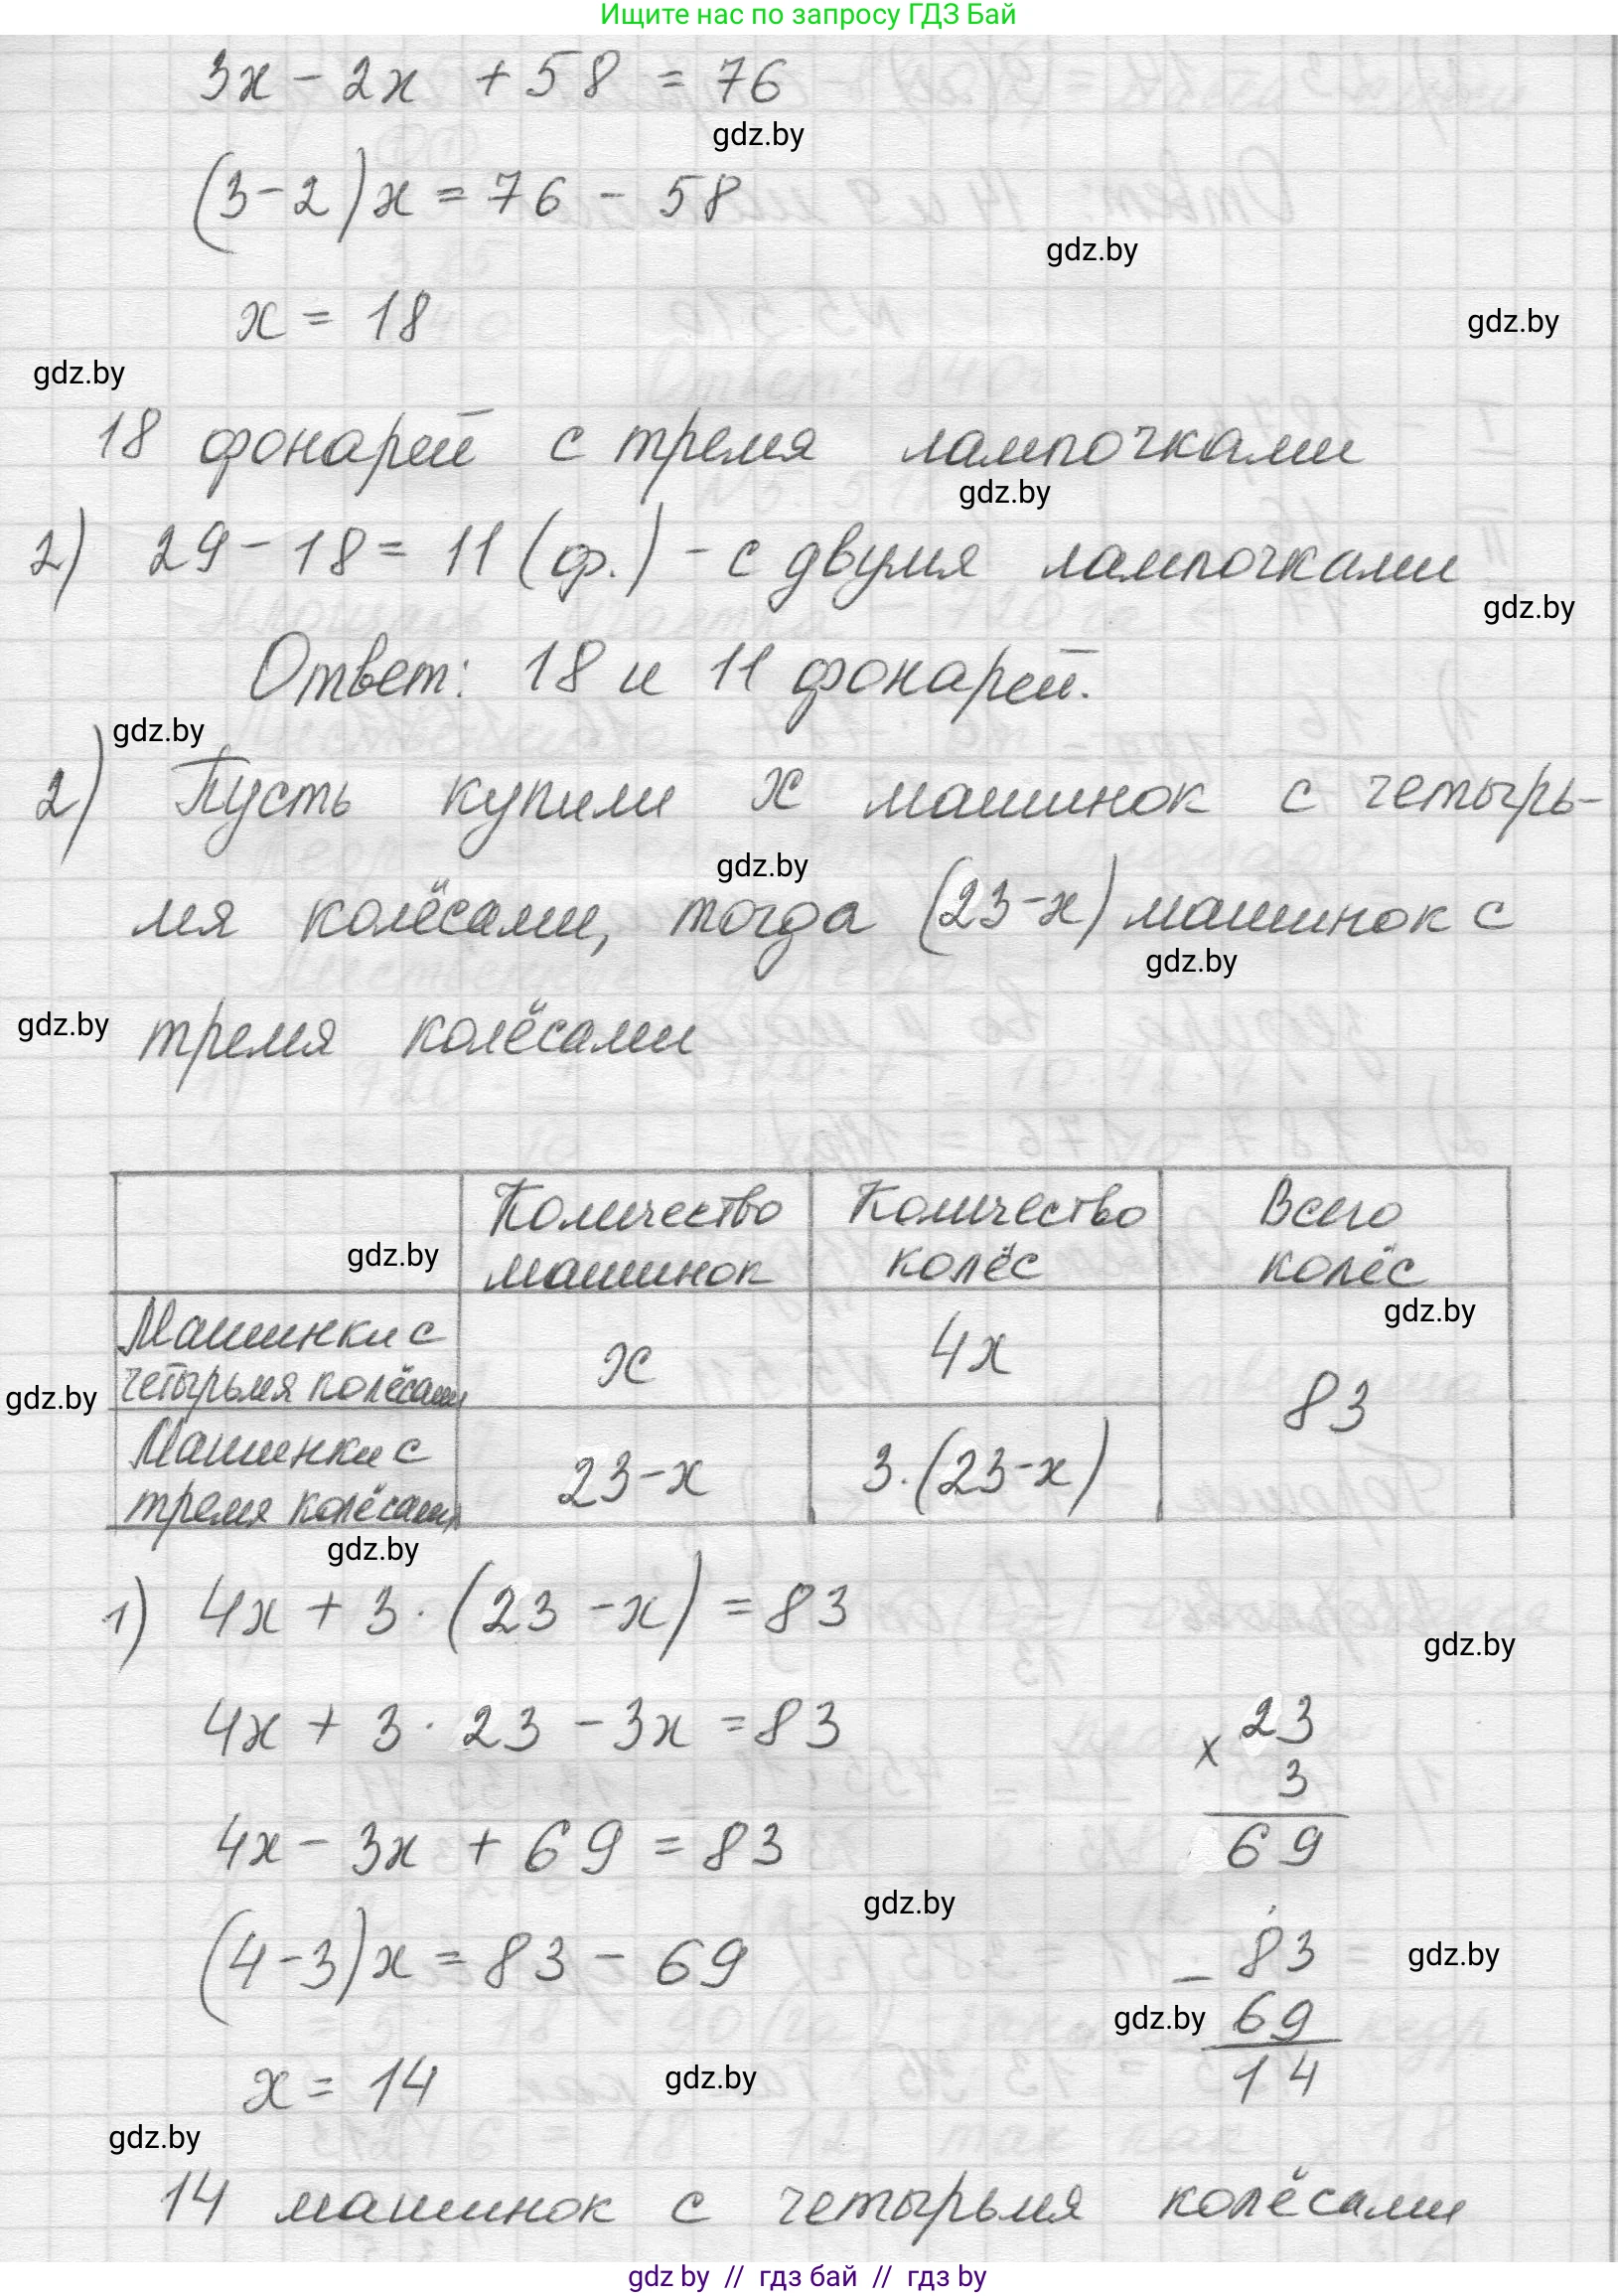 Ищите нас по запросу ГДЗ Бай
3x - 2x + 58 = 76
gdz.by
(3-2)x = 76 - 58
gdz.by
x = 18
gdz.by
gdz.by
18 фонарей с тремя лампочками
gdz.by
2) 29 - 18 = 11 (ф.) - с двумя лампочками
gdz.by
Ответ: 18 и 11 фонарей.
gdz.by
2) Пусть купили x машинок с четырь-
gdz.by
мя колёсами, тогда (23-x) машинок с
gdz.by
gdz.by
тремя колёсами
Количество машинок
Количество колёс
Всего колёс
gdz.by
gdz.by
Машинки с четырьмя колёсами
x
4x
83
gdz.by
Машинки с тремя колёсами
23-x
3·(23-x)
gdz.by
1) 4x + 3·(23-x) = 83
gdz.by
4x + 3·23 - 3x = 83
x 23
3
69
4x - 3x + 69 = 83
gdz.by
(4-3)x = 83 - 69
- 83
gdz.by
gdz.by
69
14
x = 14
gdz.by
gdz.by
14 машинок с четырьмя колёсами
gdz by // гдз бай // гдз by